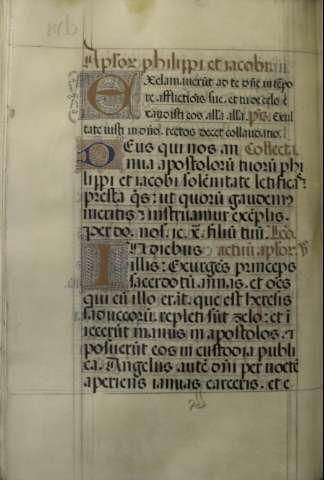 Ap̃lor̃ philippi et iacobi
Exclamauerũt ad te dñe in tẽpo
re afflictionis sue. et tu de celo e
xaudisti eos aĩla aĩla. p̃s. Exul
tate iusti in dño. rectos decet collaudatio.
Deus qui nos an Collecta
nua apostolorũ tuorũ phi
lippi et iacobi solẽnitate letificas
presta q̃s: ut quorũ gaudem'
meritis: instruamur exẽplis.
per do. nos. ic. x̃. filiũ tuũ. Lec.
In diebus actuũ ap̃lor̃. v
illis: Exurgẽs princeps
sacerdotũ annas. et oẽs
qui cũ illo erãt. que est heresis
saduceorũ. repleti sũt zelo: et i
iecerũt manus in apostolos. ⁊
posuerũt eos in custodia publi
ca. Angelus autẽ dñi per noctẽ
aperiens ianuas carceris. et e